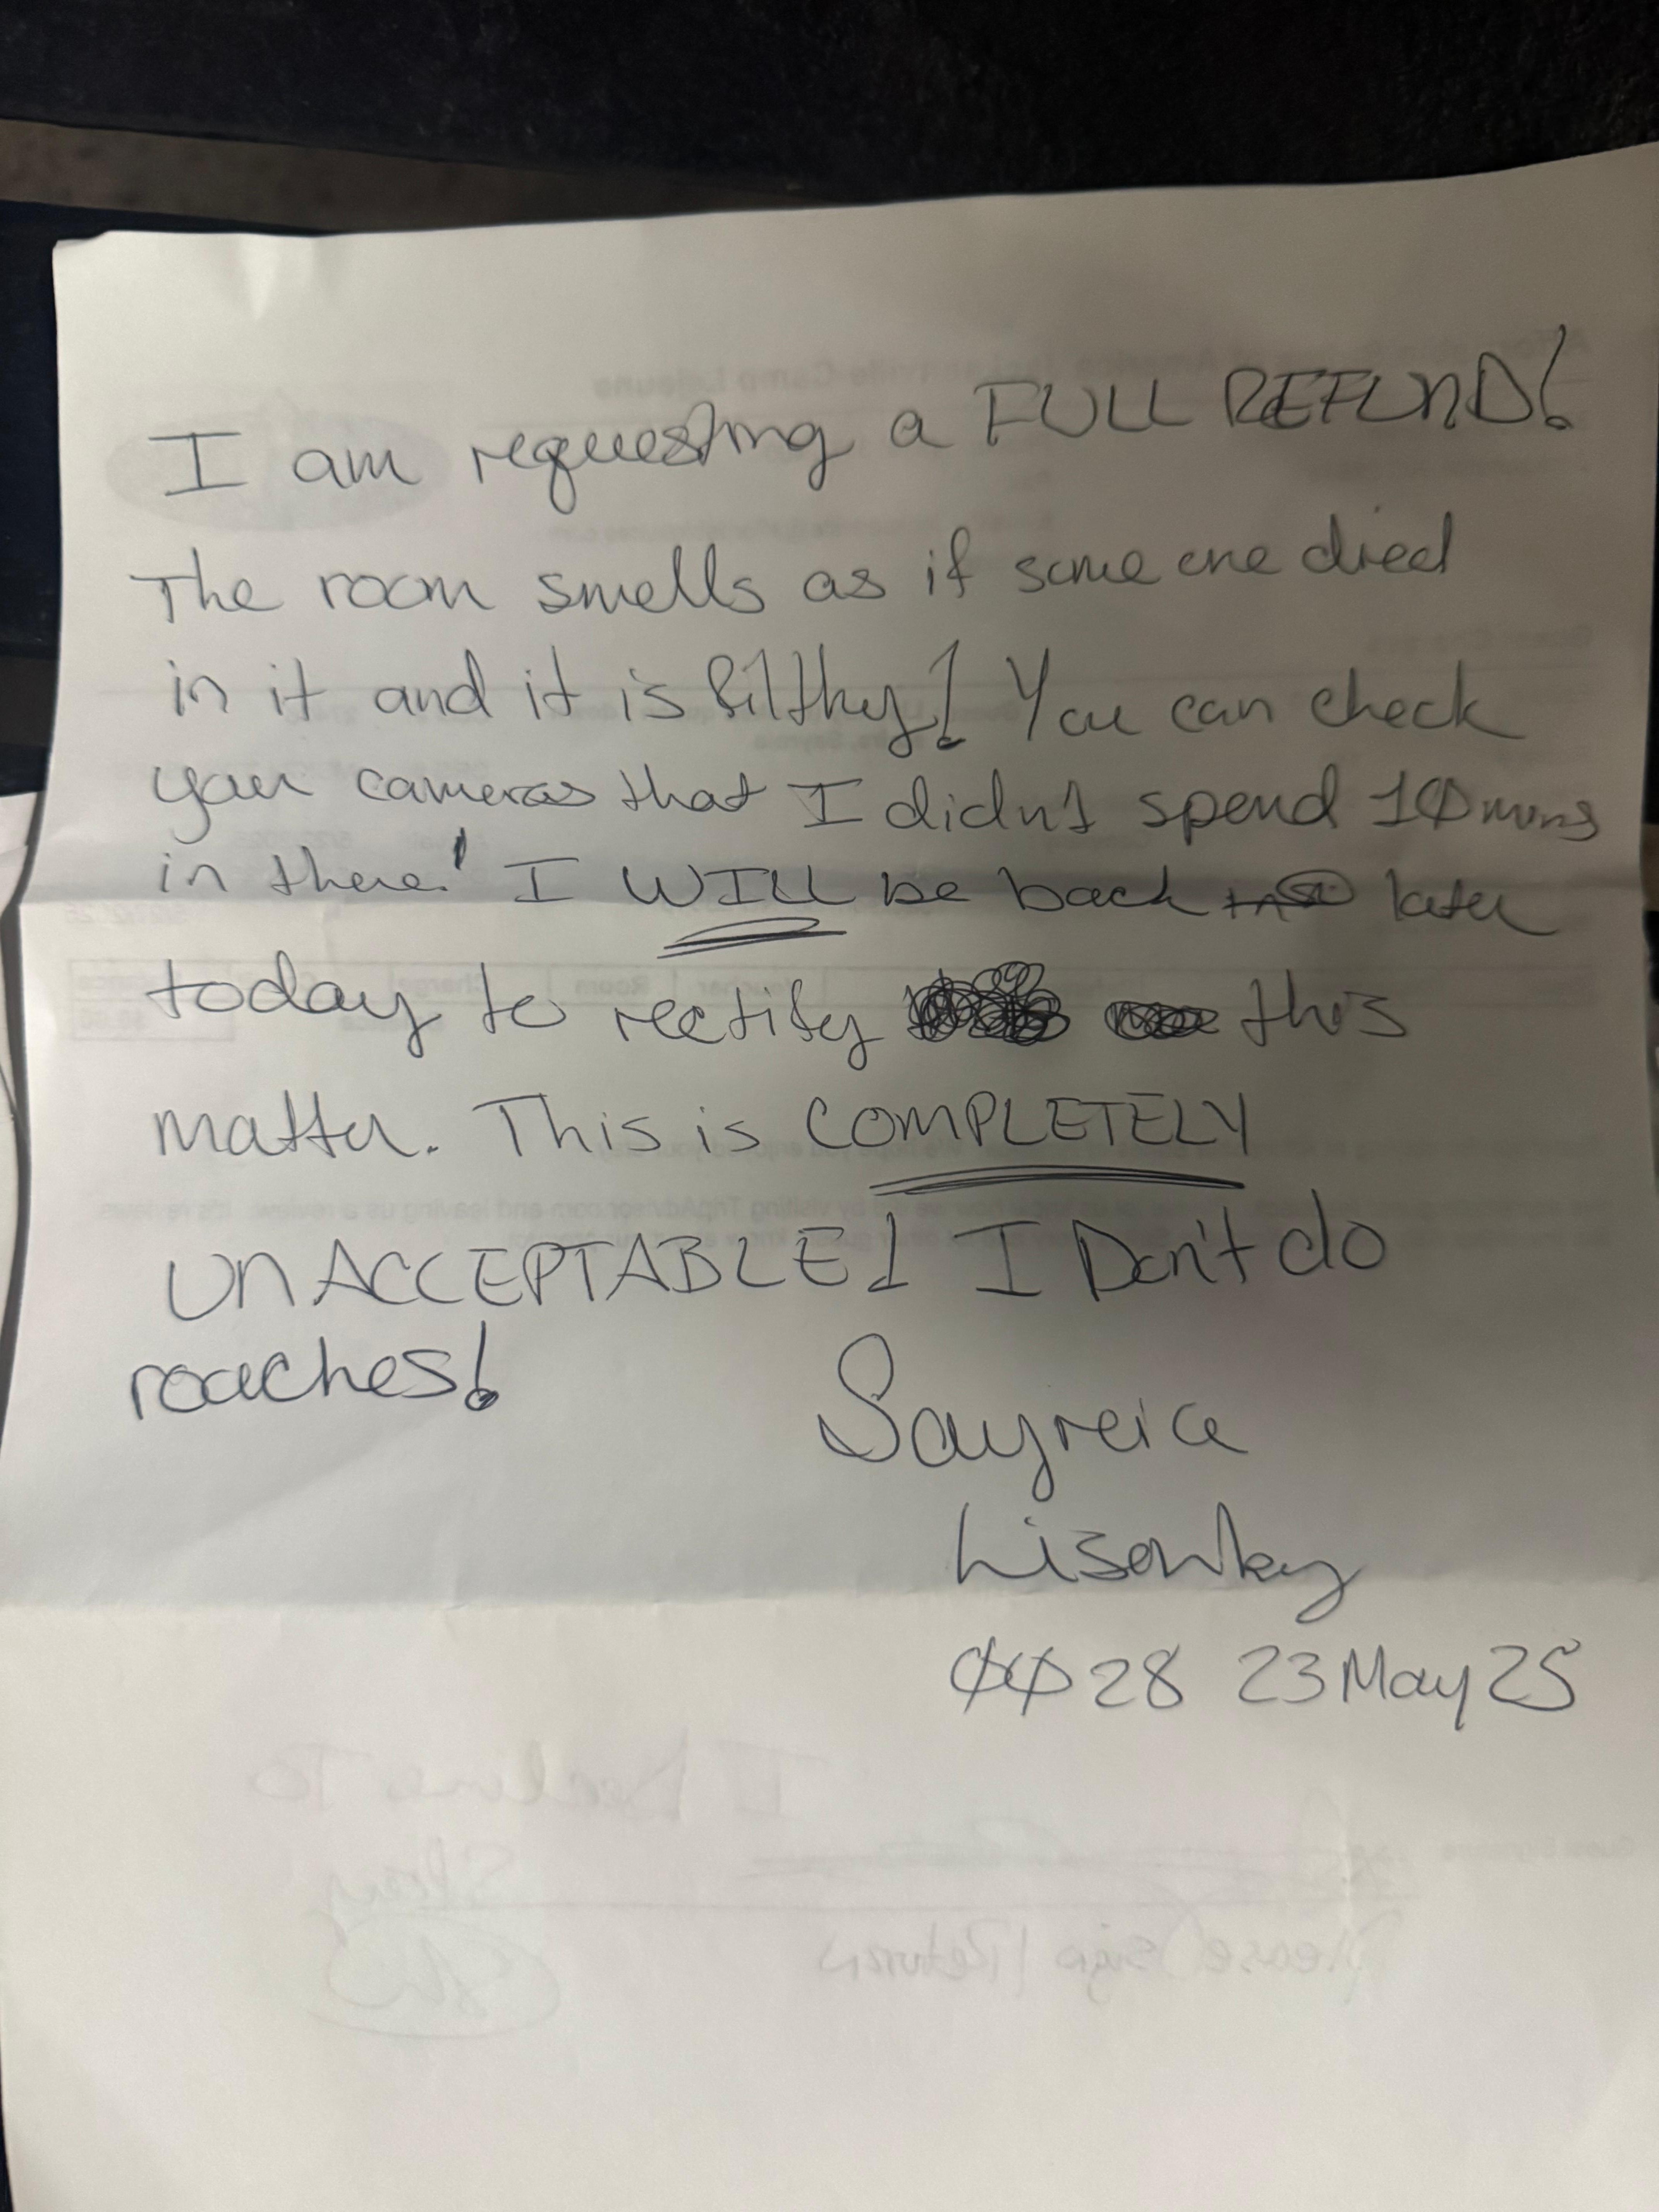 I am requesting a FULL REFUND!
The room smells as if some one died
in it and it is filthy! You can check
your cameras that I didn't spend 10 mins
in there! I WILL be back later
today to rectify this
matter. This is COMPLETELY
UNACCEPTABLE! I Don't do
roaches!
Sayreia
0028 23 May 25